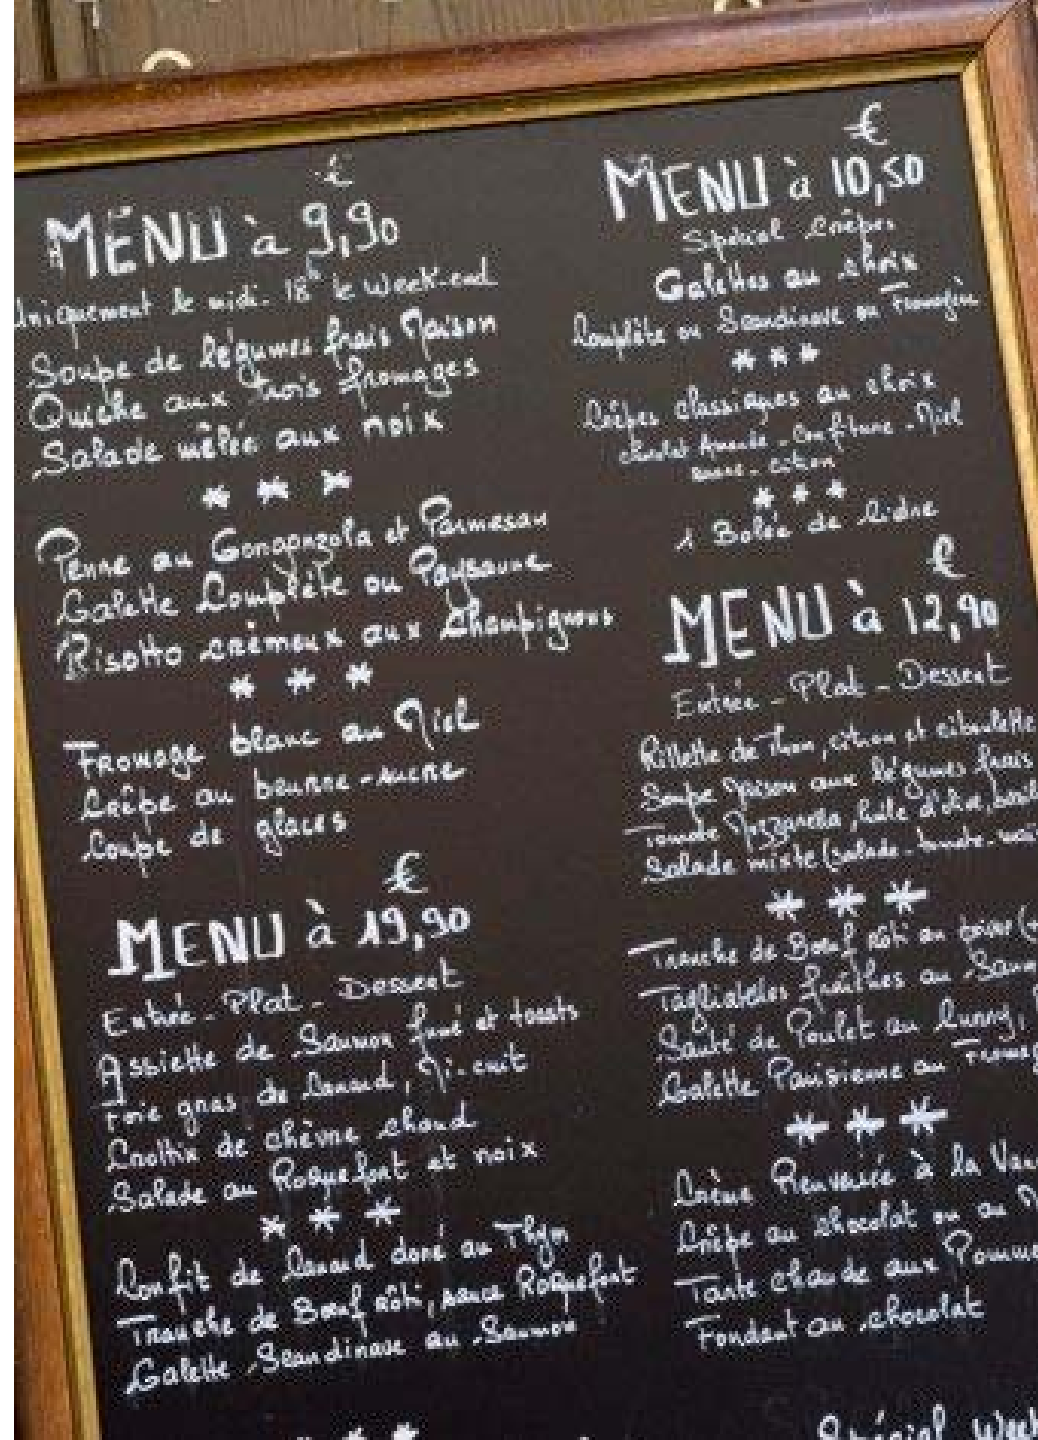 €
MENU à 9,90
Uniquement le midi - 18h le Week-end
Soupe de légumes frais Maison
Quiche aux trois fromages
Salade mêlée aux noix
* * *
Penne au Gorgonzola et Parmesan
Galette Complète ou Paysanne
Risotto crèmeux aux champignons
* * *
Fromage blanc au Miel
Crêpe au beurre-sucre
Coupe de glaces
€
MENU à 19,90
Entrée - Plat - Dessert
Assiette de Saumon fumé et toasts
Foie gras de Canard, Mi-cuit
Crottin de chèvre chaud
Salade au Roquefort et noix
* * *
Confit de Canard doré au Thym
Tranche de Bœuf rôti, sauce Roquefort
Galette Scandinave au Saumon
* *
€
MENU à 10,50
Spécial Crêpes
Galettes au choix
Complète ou Scandinave ou Fromagère
* * *
Crêpes classiques au choix
chocolat Amande - Confiture - Miel
sucre - citron
* * *
1 Bolée de Cidre
€
MENU à 12,90
Entrée - Plat - Dessert
Rillette de Thon, citron et ciboulette
Soupe Maison aux légumes frais
Tomate Mozzarella, huile d'olive,
Salade mixte (salade - tomate -
* * *
Tranche de Bœuf rôti au
Tagliatelles fraîches au
Sauté de Poulet au Curry,
Galette Parisienne au
* * *
Crème Renversée à la
Crêpe au chocolat ou au
Tarte chaude aux
Fondant au chocolat
Spécial